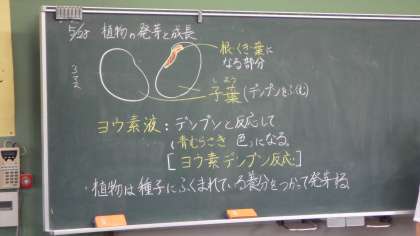 5/28 植物の発芽と成長
根・くき・葉に
なる部分
しよう
子葉(デンプンをふくむ)
ヨウ素液:デンプンと反応して
(青むらさき 色)になる。
[ヨウ素デンプン反応]
・植物は種子にふくまれている養分をつかって発芽する。